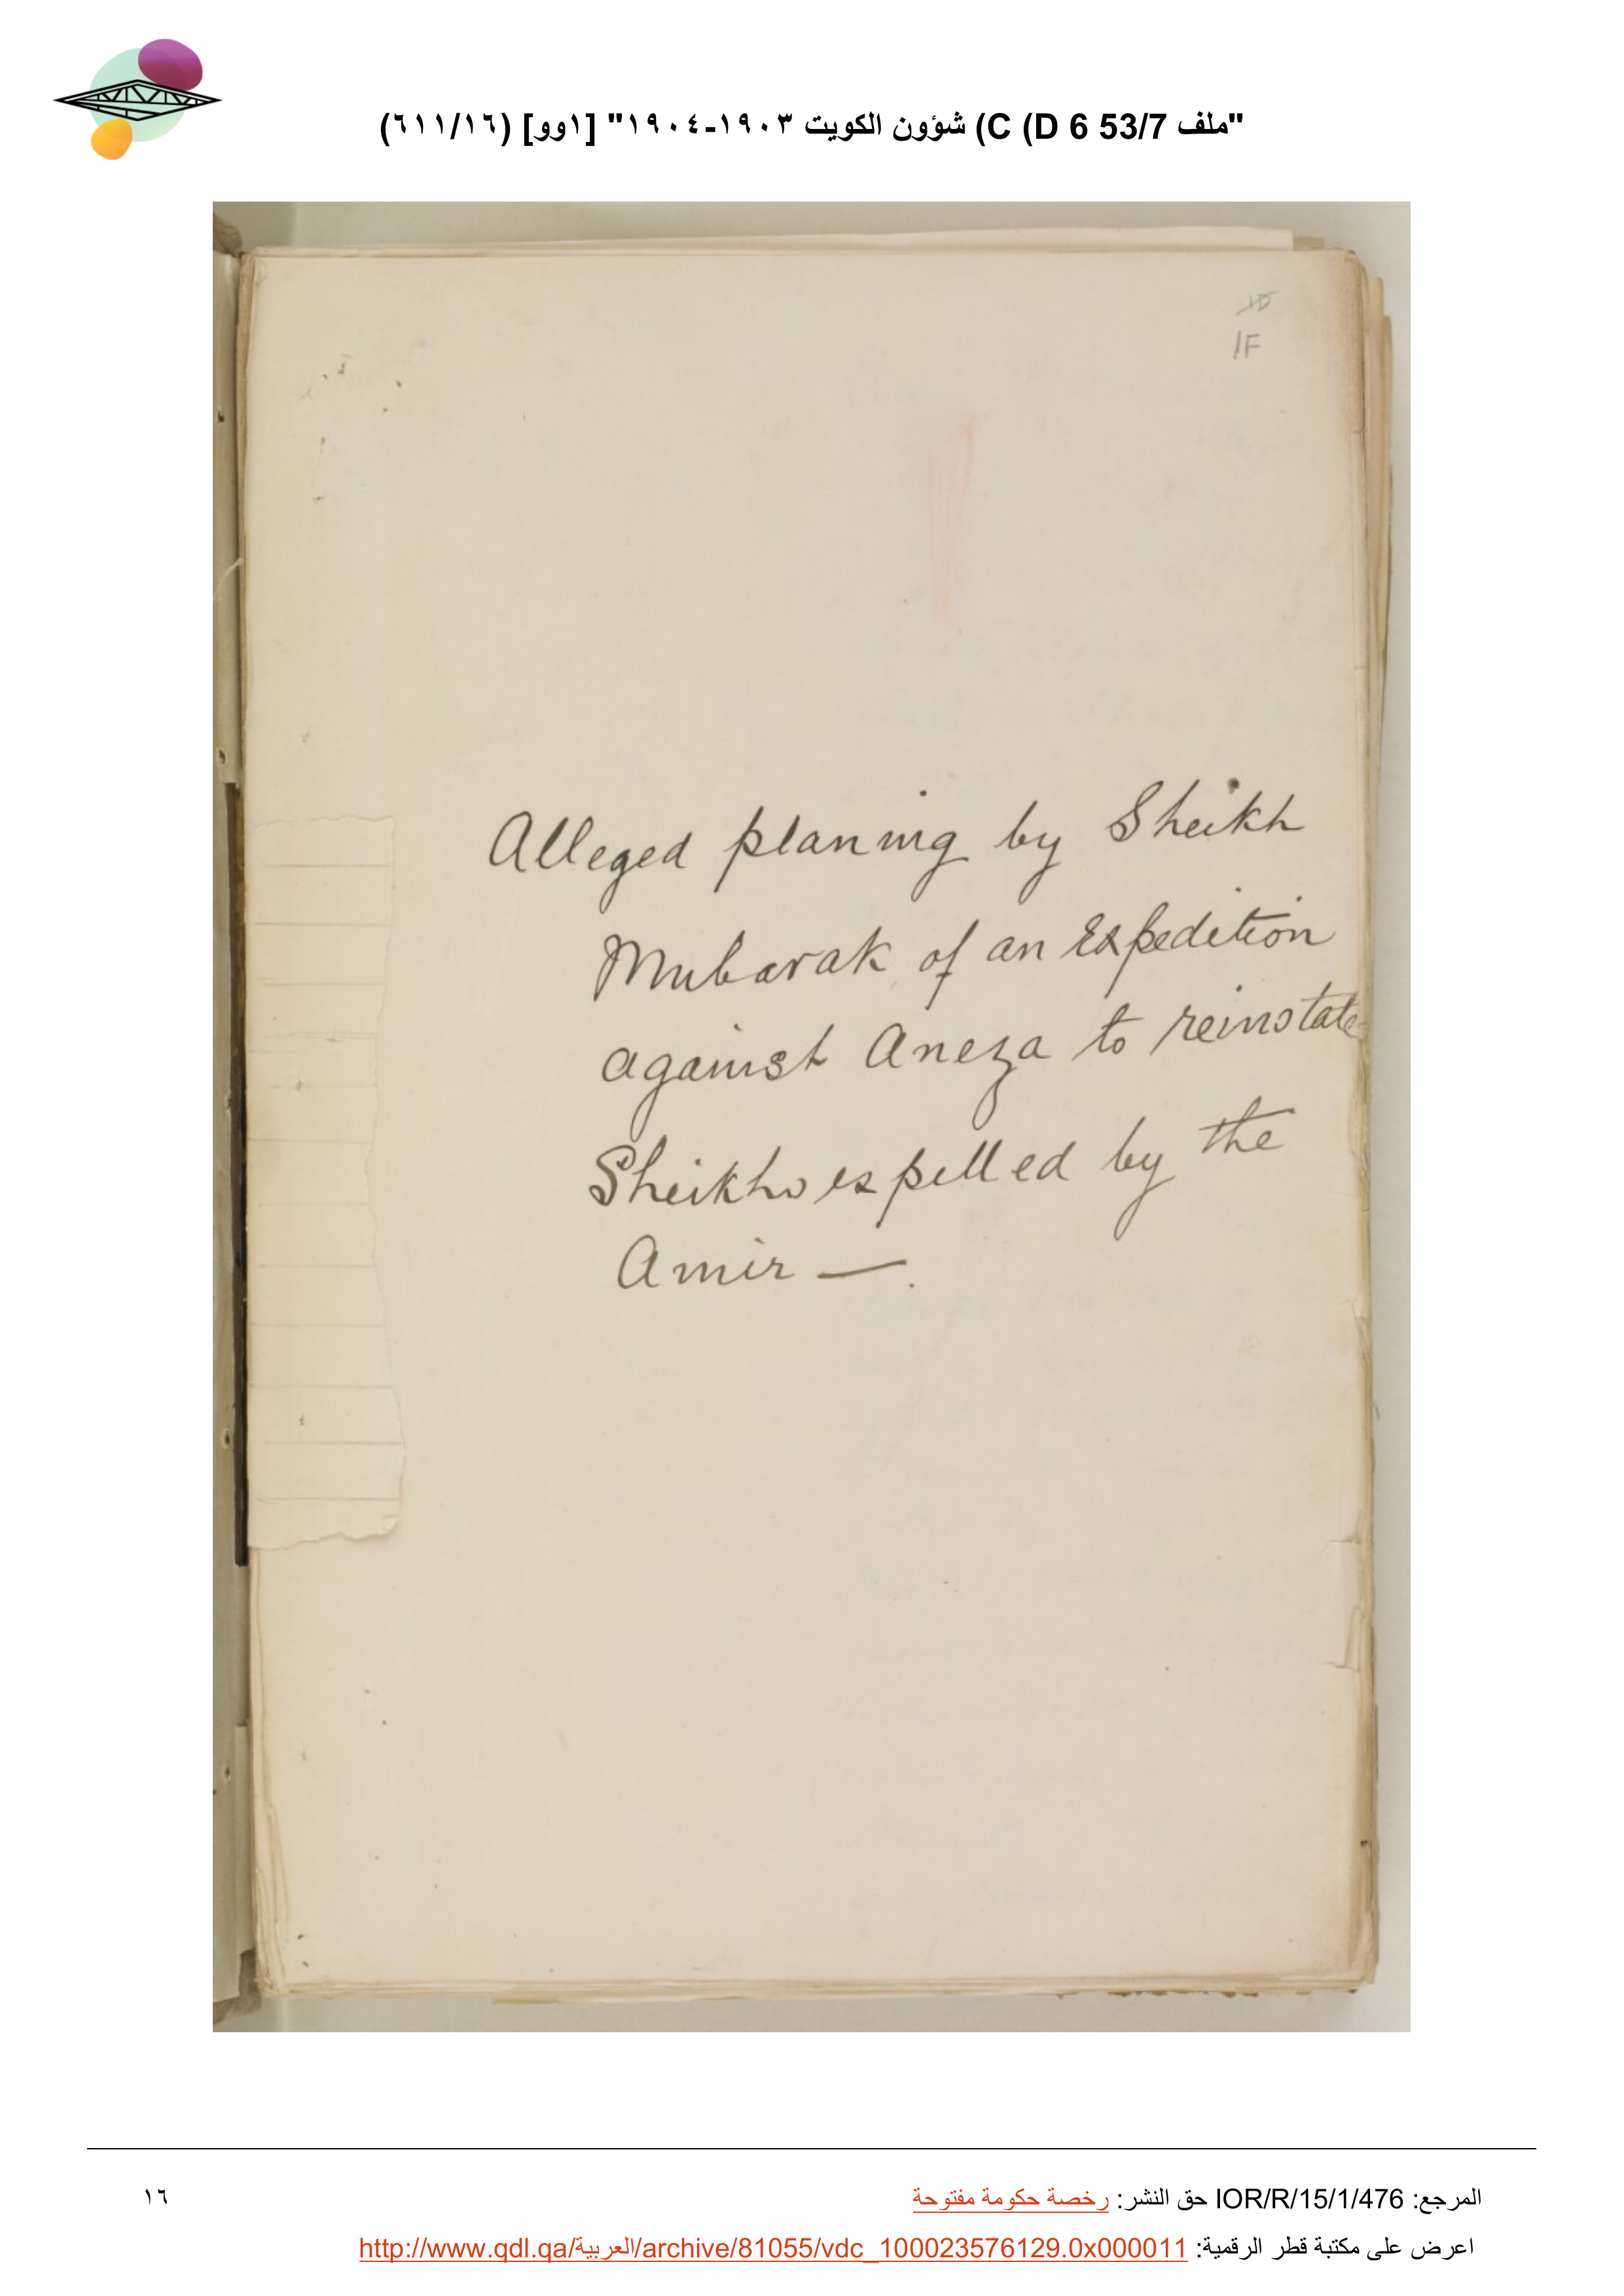 "ملف 53/7 D 6) C) شؤون الكويت ١٩٠٣-١٩٠٤" [١وو] (٦١١/١٦)
1D
1F
Alleged planing by Sheikh
Mubarak of an Expedition
against Aneza to reinstate
Sheikhs expelled by the
Amir —.
المرجع: IOR/R/15/1/476 حق النشر: رخصة حكومة مفتوحة
١٦
اعرض على مكتبة قطر الرقمية: http://www.qdl.qa/العربية/archive/81055/vdc_100023576129.0x000011